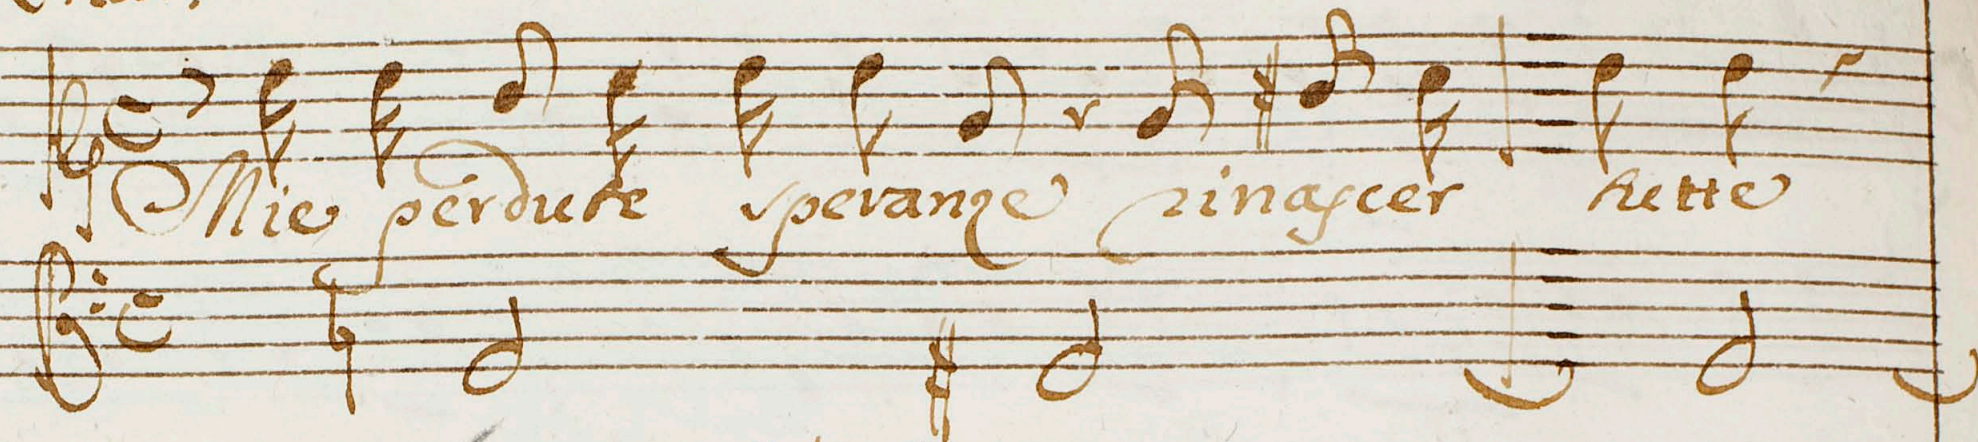 Mie perdute speranze rinascer